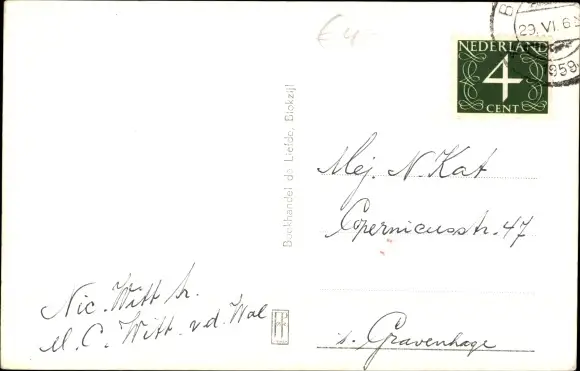 €4-
29.VI.6
959
NEDERLAND
4
CENT
Boekhandel de Liefde, Blokzijl
Mej. N. Kat
Copernicusstr. 47
s. Gravenhage
Nic. Witt Sr.
M. C. Witt. v.d. Wal